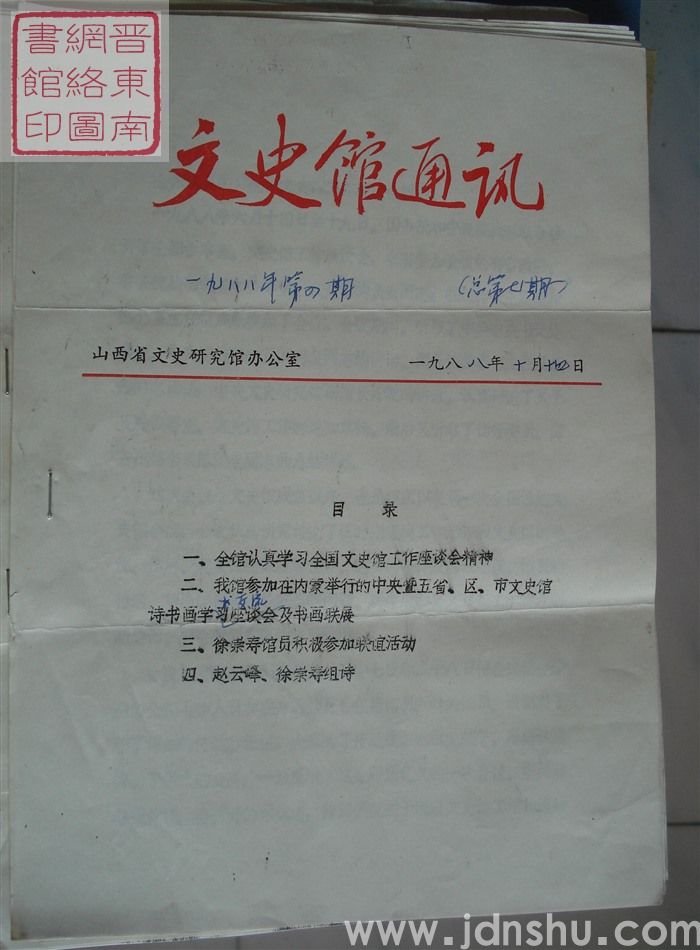 晋東南
網絡圖
書館印
文史馆通讯
一九八八年第四期 (总第七期)
山西省文史研究馆办公室 一九八八年十月十四日
目 录
一、全馆认真学习全国文史馆工作座谈会精神
二、我馆参加在内蒙举行的中央暨五省、区、市文史馆
诗书画学习座谈会及书画联展
三、徐崇寿馆员积极参加联谊活动
四、赵云峰、徐崇寿组诗
www.jdnshu.com